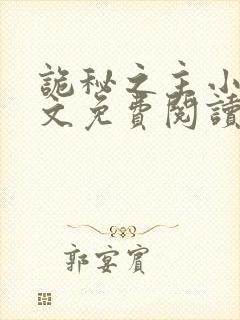 詭秘之主小
文免費閱讀
郭宴賓